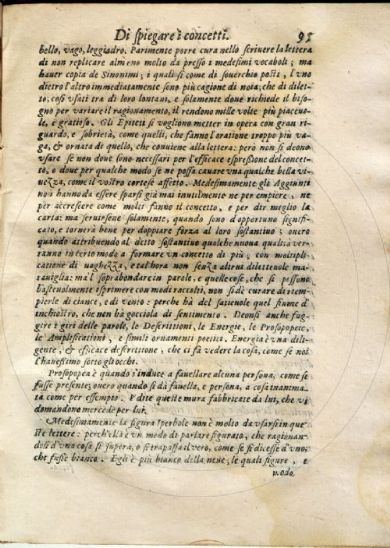 Di spiegare i concetti. 95
bello, vago, leggiadro. Parimente porre cura nello scriuere la lettera
di non replicare almeno molto da presso i medesimi vocaboli; ma
hauer copia de Sinonimi; i quali sì come di souerchio posti, l'vno
dietro l'altro immediatamente sono più cagione di noia, che di dilet-
to; così vsati tra di loro lontano, e solamente doue richiede il biso-
gno per variare il ragionamento, il rendono mille volte più piaceuo-
le, e gratioso. Gli Epiteti si vogliono metter in opera con gran ri-
guardo, e sobrietà, come quelli, che fanno l'oratione troppo più va-
ga, & ornata di quello, che conuiene alla lettera: però non si deono
vsare se non doue sono necessari per l'efficace espressione del concet-
to, o doue per qualche modo se ne possa cauare vna qualche bella vi-
uezza, come il vostro cortese affetto. Medesimamente gli Aggiunti
non hanno da essere sparsi già mai inutilmente ne per empiere, ne
per accrescere come molti fanno il concetto, e per dir meglio la
carta: ma seruirsene solamente, quando sono d'opportuno signifi-
cato, e tornerà bene per doppiare forza al loro sostantiuo: ouero
quando attribuendo al detto sostantiuo qualche nuoua qualità ver-
ranno in certo modo a formare vn concetto di più, con moltipli-
catione di vaghezza, e talhora non senza alcuna diletteuole ma-
rauiglia: ma'l soprabondare in parole, e quelle cose, che si possono
basteuolmente esprimere con modi raccolti, non si dè curare di riem-
pierle di ciance, e di vento: perche hà del satieuole quel fiume d'
inchiostro, che non hà gocciola di sentimento. Deonsi anche fug-
gire i giri delle parole, le Descrittioni, le Energie, le Prosopopeie,
le Amplificationi, e simili ornamenti poetici. Energia è vna dili-
gente, & efficace descrittione, che ci fà vedere la cosa, come se noi
l'hauessimo sotto gli occhi.
Prosopopea è quando s'induce a fauellare alcuna persona, come se
fusse presente; ouero quando si dà fauella, e persona, a cosa inanima-
ta come per essempio. Vdite queste mura fabbricate da lui, che vi
domandono mercede per lui.
Medesimamente la figura Iperbole non è molto da vsarsi in que-
ste lettere: perch'ella è vn modo di parlare figurato, che ragionan-
dosi d'vna cosa si supera, o si trapassa il vero, come se si dicesse d'vno,
che fusse bianco. Egli è più bianco della neue, le quali figure, e